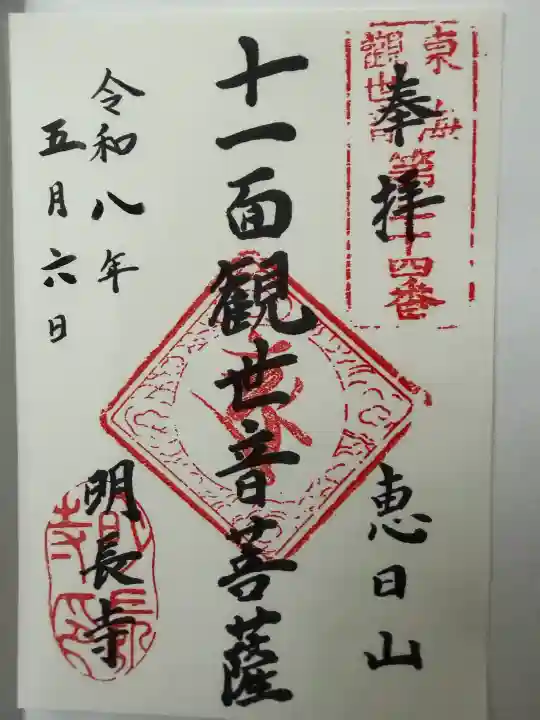 東海
觀世音
第二十四番
奉拝
恵日山
十一面観世音菩薩
令和八年
五月六日
明長寺